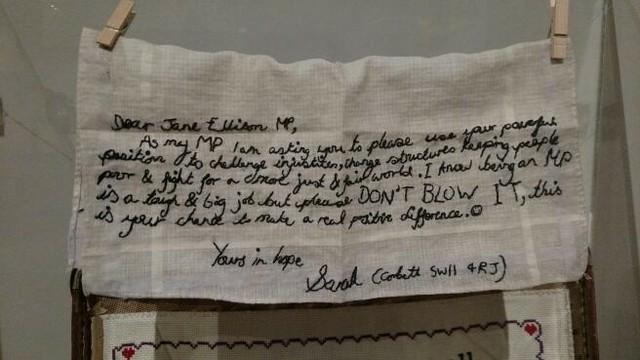 Dear Jane Ellison MP,
As my MP I am asking you to please use your powerful
position to challenge injustices, change structures keeping people
poor & fight for a more just & fair world. I know being an MP
is a tough & big job but please DON'T BLOW IT, this
is your chance to make a real positive difference.☺
Yours in hope
Sarah (Corbett SW11 4RJ)